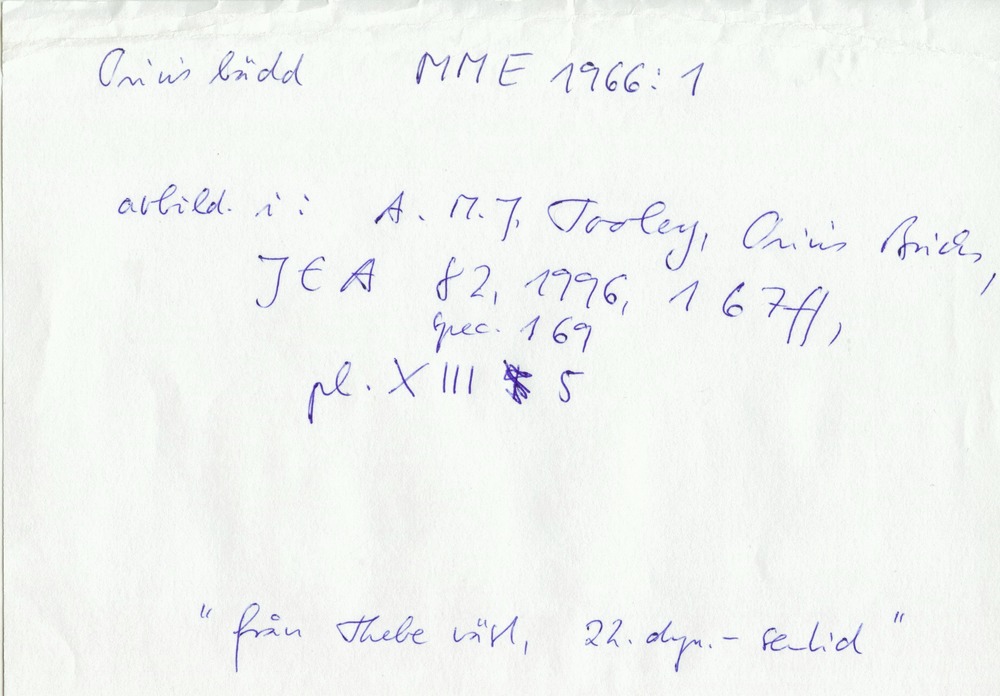 Osiris bädd MME 1966:1
avbild. i: A. M. J. Tooley, Osiris Bricks,
JEA 82, 1996, 167ff,
spec. 169
pl. XIII 5
"från Thebe väst, 22. dyn. - sentid"